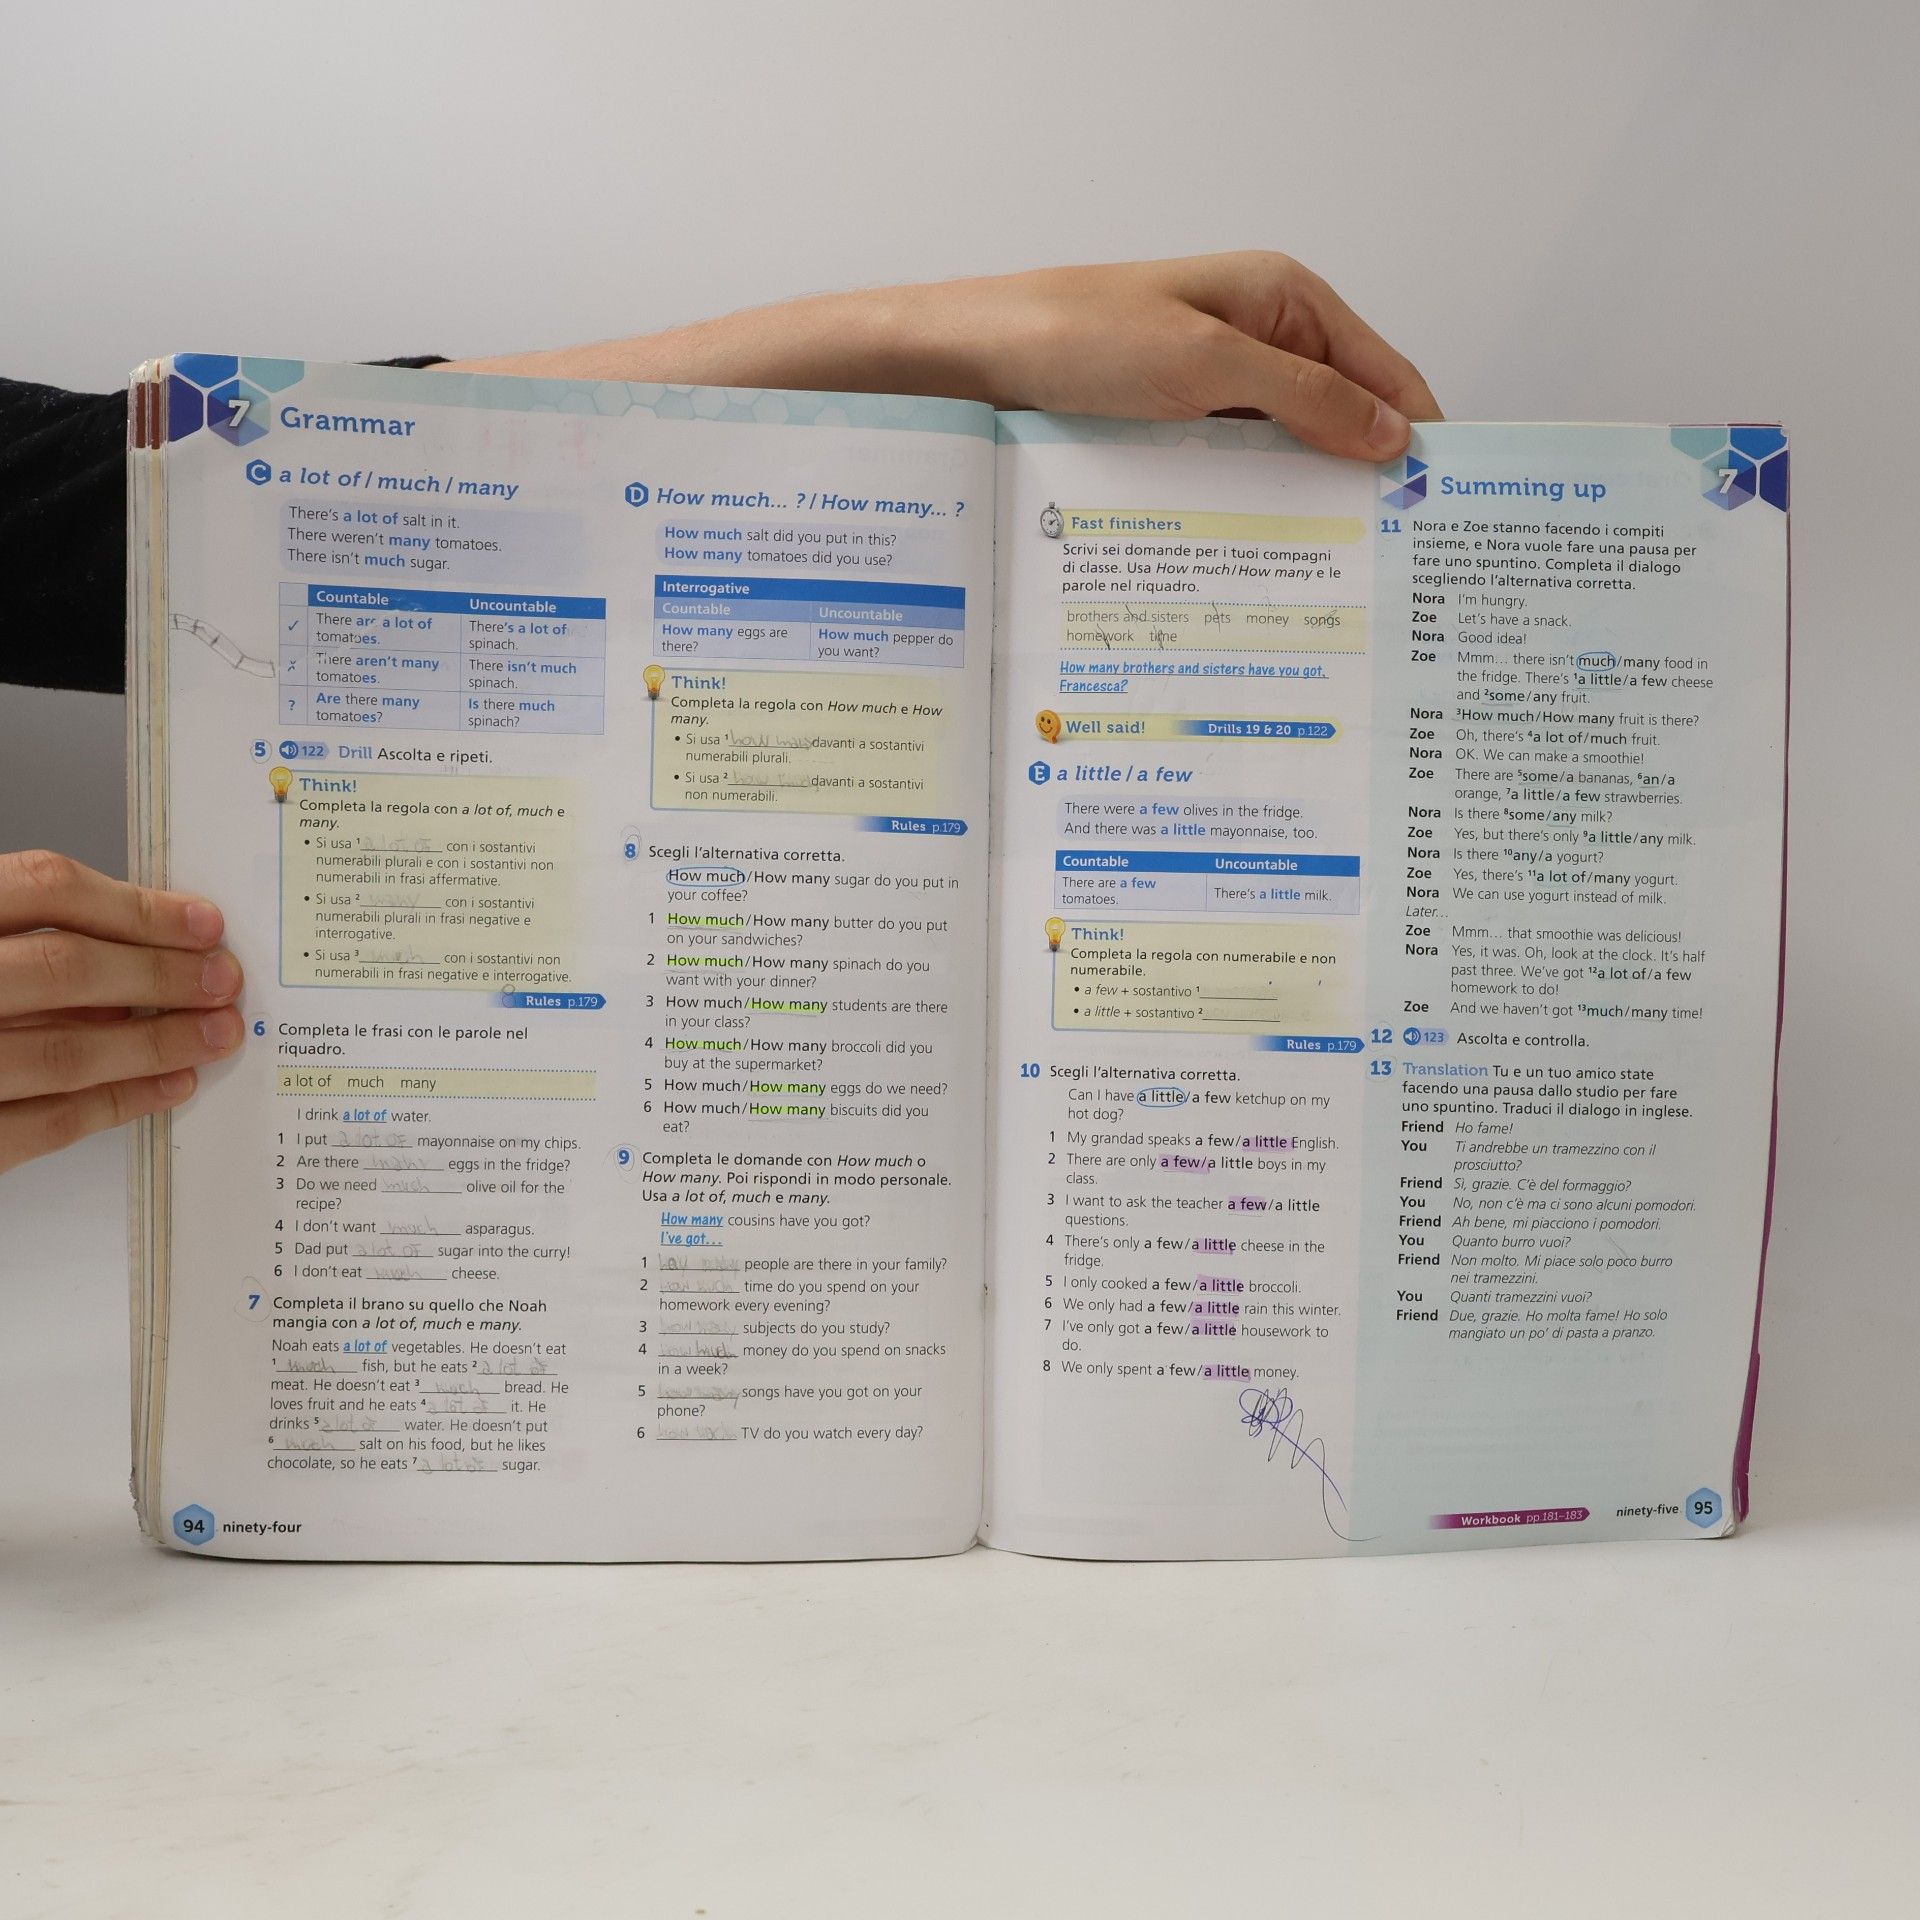 7 Grammar
C a lot of / much / many
There's a lot of salt in it.
There weren't many tomatoes.
There isn't much sugar.
Countable Uncountable
✓ There are a lot of tomatoes. There's a lot of spinach.
✗ There aren't many tomatoes. There isn't much spinach.
? Are there many tomatoes? Is there much spinach?
5 122 Drill Ascolta e ripeti.
Think!
Completa la regola con a lot of, much e
many.
• Si usa ¹ a lot of con i sostantivi
numerabili plurali e con i sostantivi non
numerabili in frasi affermative.
• Si usa ² many con i sostantivi
numerabili plurali in frasi negative e
interrogative.
• Si usa ³ much con i sostantivi non
numerabili in frasi negative e interrogative.
Rules p.179
6 Completa le frasi con le parole nel
riquadro.
a lot of much many
I drink a lot of water.
1 I put a lot of mayonnaise on my chips.
2 Are there many eggs in the fridge?
3 Do we need much olive oil for the
recipe?
4 I don't want much asparagus.
5 Dad put a lot of sugar into the curry!
6 I don't eat much cheese.
7 Completa il brano su quello che Noah
mangia con a lot of, much e many.
Noah eats a lot of vegetables. He doesn't eat
¹ much fish, but he eats ² a lot of
meat. He doesn't eat ³ much bread. He
loves fruit and he eats ⁴ a lot of it. He
drinks ⁵ a lot of water. He doesn't put
⁶ much salt on his food, but he likes
chocolate, so he eats ⁷ a lot of sugar.
94 ninety-four
D How much... ? / How many... ?
How much salt did you put in this?
How many tomatoes did you use?
Interrogative
Countable Uncountable
How many eggs are there? How much pepper do you want?
Think!
Completa la regola con How much e How
many.
• Si usa ¹ how many davanti a sostantivi
numerabili plurali.
• Si usa ² how much davanti a sostantivi
non numerabili.
Rules p.179
8 Scegli l'alternativa corretta.
How much/How many sugar do you put in
your coffee?
1 How much/How many butter do you put
on your sandwiches?
2 How much/How many spinach do you
want with your dinner?
3 How much/How many students are there
in your class?
4 How much/How many broccoli did you
buy at the supermarket?
5 How much/How many eggs do we need?
6 How much/How many biscuits did you
eat?
9 Completa le domande con How much o
How many. Poi rispondi in modo personale.
Usa a lot of, much e many.
How many cousins have you got?
I've got...
1 people are there in your family?
2 time do you spend on your
homework every evening?
3 subjects do you study?
4 how much money do you spend on snacks
in a week?
5 songs have you got on your
phone?
6 TV do you watch every day?
Fast finishers
Scrivi sei domande per i tuoi compagni
di classe. Usa How much/How many e le
parole nel riquadro.
brothers and sisters pets money songs
homework time
How many brothers and sisters have you got,
Francesca?
Well said! Drills 19 & 20 p.122
E a little / a few
There were a few olives in the fridge.
And there was a little mayonnaise, too.
Countable Uncountable
There are a few tomatoes. There's a little milk.
Think!
Completa la regola con numerabile e non
numerabile.
• a few + sostantivo ¹
• a little + sostantivo ²
Rules p.179
10 Scegli l'alternativa corretta.
Can I have a little/a few ketchup on my
hot dog?
1 My grandad speaks a few/a little English.
2 There are only a few/a little boys in my
class.
3 I want to ask the teacher a few/a little
questions.
4 There's only a few/a little cheese in the
fridge.
5 I only cooked a few/a little broccoli.
6 We only had a few/a little rain this winter.
7 I've only got a few/a little housework to
do.
8 We only spent a few/a little money.
Summing up 7
11 Nora e Zoe stanno facendo i compiti
insieme, e Nora vuole fare una pausa per
fare uno spuntino. Completa il dialogo
scegliendo l'alternativa corretta.
Nora I'm hungry.
Zoe Let's have a snack.
Nora Good idea!
Zoe Mmm... there isn't much/many food in
the fridge. There's ¹a little/a few cheese
and ²some/any fruit.
Nora ³How much/How many fruit is there?
Zoe Oh, there's ⁴a lot of/much fruit.
Nora OK. We can make a smoothie!
Zoe There are ⁵some/a bananas, ⁶an/a
orange, ⁷a little/a few strawberries.
Nora Is there ⁸some/any milk?
Zoe Yes, but there's only ⁹a little/any milk.
Nora Is there ¹⁰any/a yogurt?
Zoe Yes, there's ¹¹a lot of/many yogurt.
Nora We can use yogurt instead of milk.
Later...
Zoe Mmm... that smoothie was delicious!
Nora Yes, it was. Oh, look at the clock. It's half
past three. We've got ¹²a lot of/a few
homework to do!
Zoe And we haven't got ¹³much/many time!
12 123 Ascolta e controlla.
13 Translation Tu e un tuo amico state
facendo una pausa dallo studio per fare
uno spuntino. Traduci il dialogo in inglese.
Friend Ho fame!
You Ti andrebbe un tramezzino con il
prosciutto?
Friend Sì, grazie. C'è del formaggio?
You No, non c'è ma ci sono alcuni pomodori.
Friend Ah bene, mi piacciono i pomodori.
You Quanto burro vuoi?
Friend Non molto. Mi piace solo poco burro
nei tramezzini.
You Quanti tramezzini vuoi?
Friend Due, grazie. Ho molta fame! Ho solo
mangiato un po' di pasta a pranzo.
Workbook pp.181–183
ninety-five 95